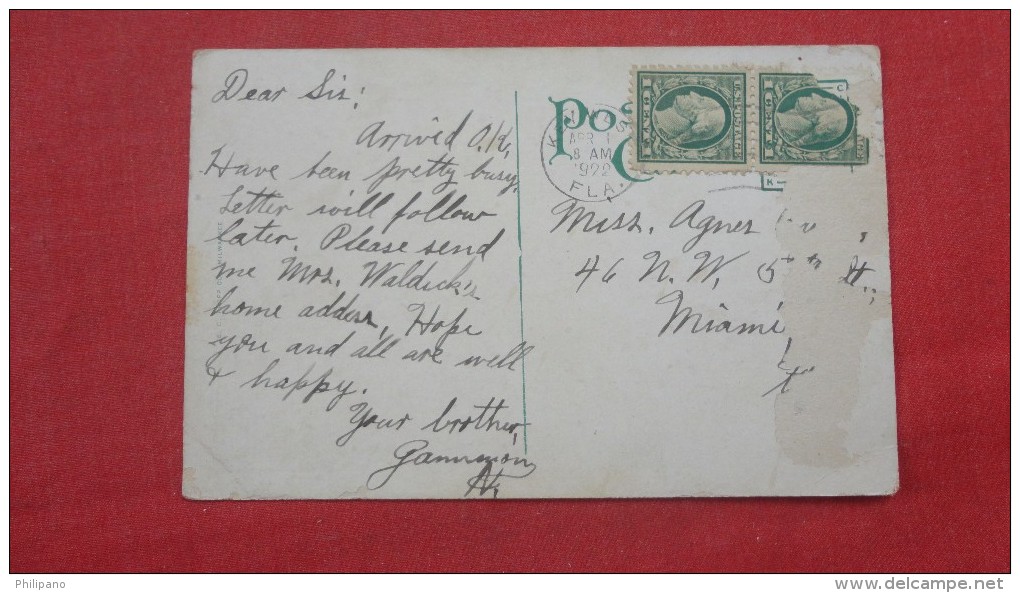 Dear Sis:
Arrived O.K.
Have been pretty busy.
Letter will follow
later. Please send
me Mrs. Waldick's
home address, Hope
you and all are well
& happy.
Your brother,
POS
C
APR 1
8 AM
1922
FLA.
U.S. POSTAGE
1 CENT 1
1 CENT 1
Miss. Agnes
46 N.W. 5th St.,
Miami
Philipano
www.delcampe.net